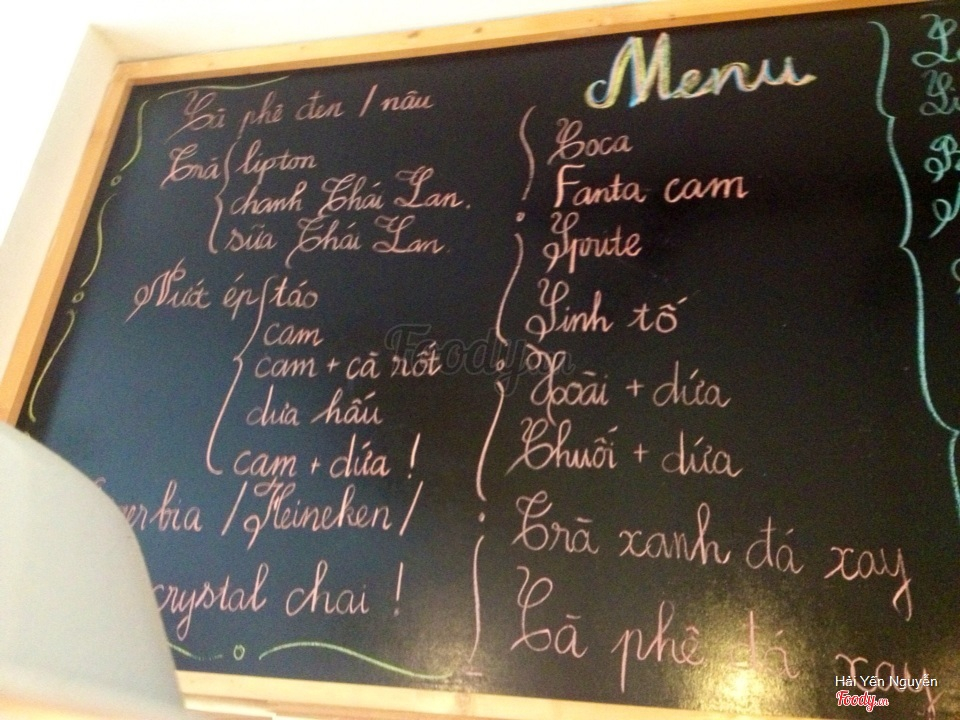 Menu
Cà phê đen / nâu
Trà lipton
chanh Thái Lan.
sữa Thái Lan.
Nước ép táo
cam
cam + cà rốt
dưa hấu
cam + dứa !
bia / Heineken /
crystal chai !
Coca
Fanta cam
Sprite
Sinh tố
Xoài + dứa
Chuối + dứa
Trà xanh đá xay
Cà phê đá xay
Foody.vn
Hải Yến Nguyễn
Foody.vn